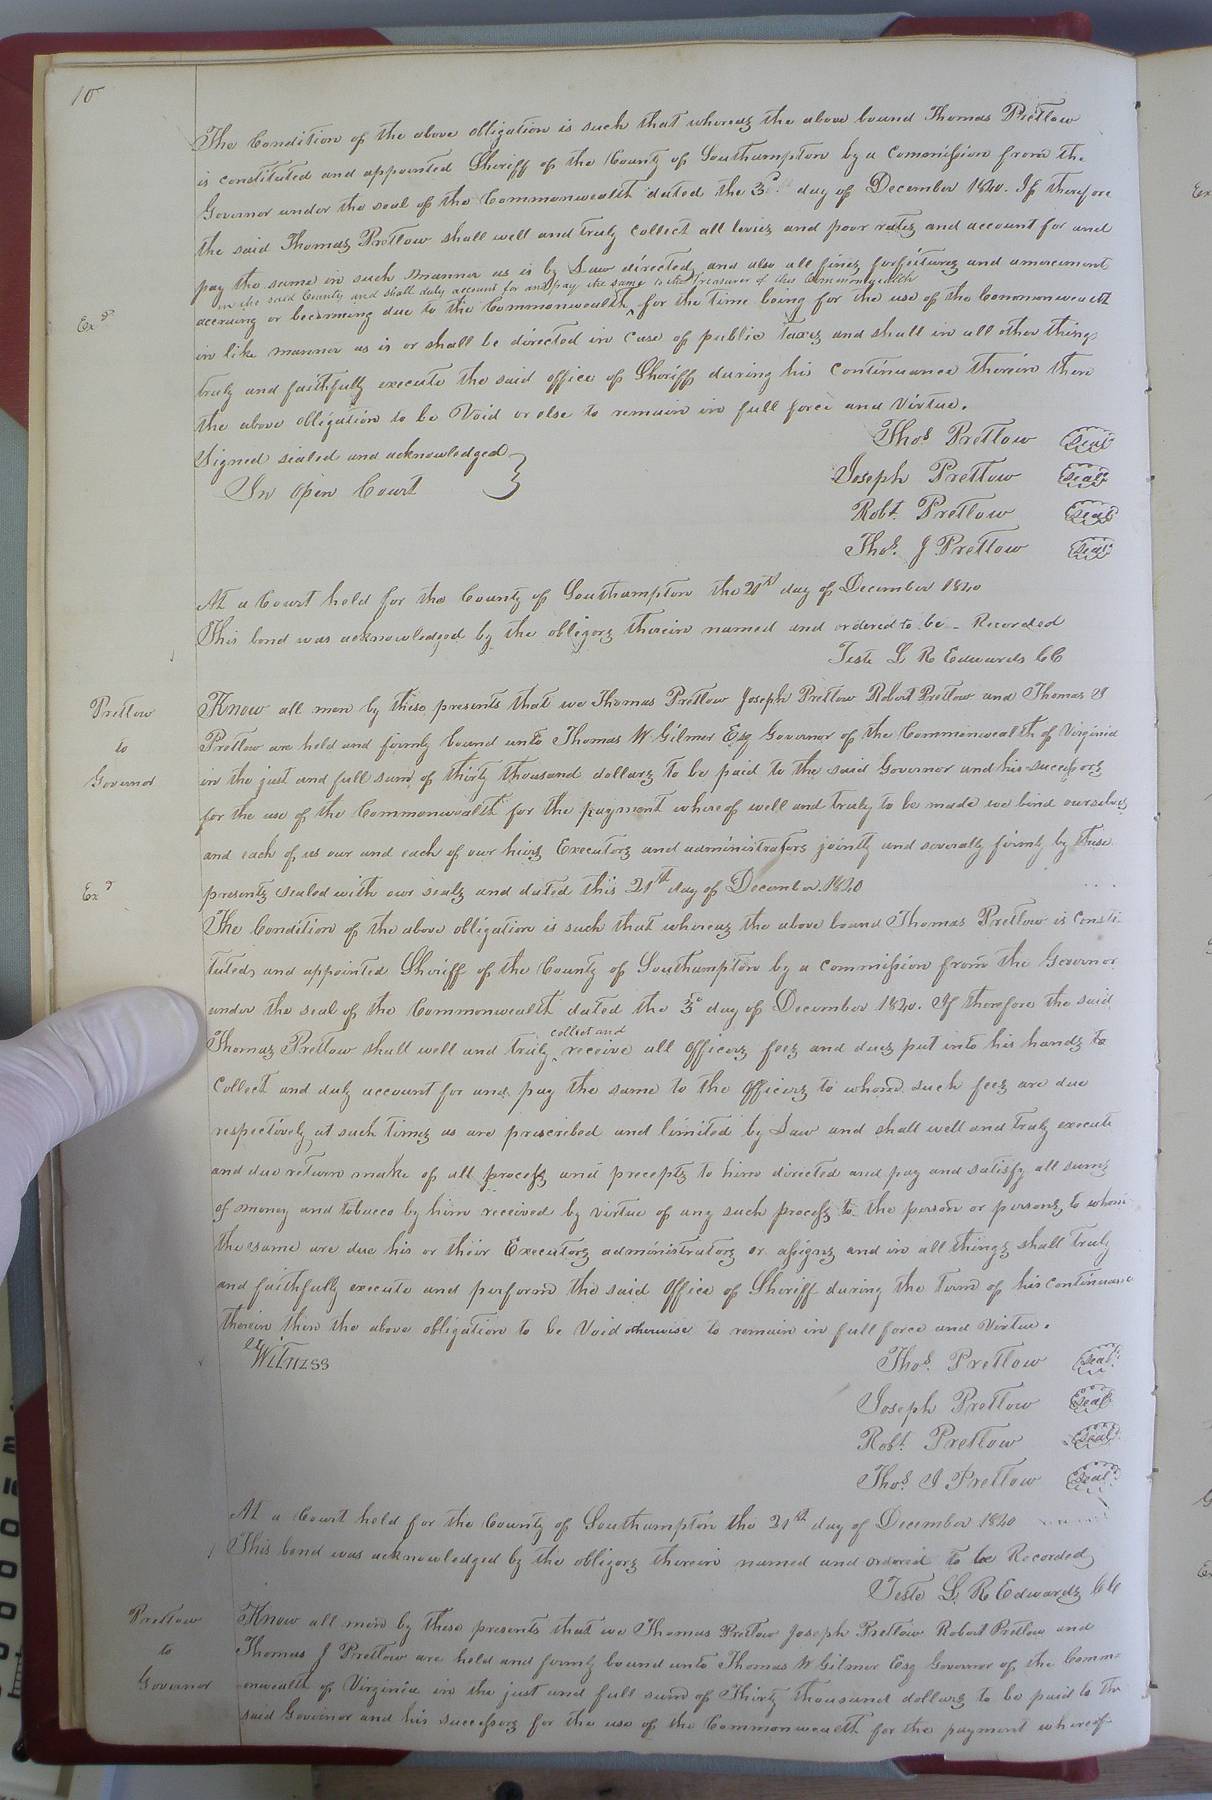 10
The Condition of the above obligation is such that whereas the above bound Thomas Pretlow
is constituted and appointed Sheriff of the County of Southampton by a Commission from the
Governor under the seal of the Commonwealth dated the 3d day of December 1840. If therefore
the said Thomas Pretlow shall well and truly collect all levies and poor rates and account for and
pay the same in such manner as is by Law directed, and also all fines forfeitures and amercements
in the said County and shall duly account for and pay the same to the Treasurer of this Commonwealth
Exd
accruing or becoming due to the Commonwealth ‸ for the time being for the use of the Commonwealth
in like manner as is or shall be directed in case of public Taxes and shall in all other things
truly and faithfully execute the said office of Sheriff during his continuance therein then
the above obligation to be Void or else to remain in full force and virtue.
Signed sealed and acknowledged }
In Open Court
Thos. Pretlow Seal
Joseph Pretlow Seal
Robt. Pretlow Seal
Thos. J Pretlow Seal
At a Court held for the County of Southampton the 21st day of December 1840
This bond was acknowledged by the obligors therein named and ordered to be - Recorded
Teste L R Edwards CC
Pretlow
to
Governor
Know all men by these presents that we Thomas Pretlow Joseph Pretlow Robert Pretlow and Thomas J
Pretlow are held and firmly bound unto Thomas W Gilmer Esq Governor of the Commonwealth of Virginia
in the just and full sum of thirty thousand dollars to be paid to the said Governor and his successors
for the use of the Commonwealth for the payment whereof well and truly to be made we bind ourselves
and each of us our and each of our heirs Executors and administrators jointly and severally firmly by these
Exd
presents sealed with our seals and dated this 21st day of December 1840
The Condition of the above obligation is such that whereas the above bound Thomas Pretlow is consti-
tuted, and appointed Sheriff of the County of Southampton by a commission from the Governor
under the seal of the Commonwealth dated the 3d day of December 1840. If therefore the said
collect and
Thomas Pretlow shall well and truly ‸ receive all Officers fees and dues put into his hands to
collect and duly account for and pay the same to the Officers to whom such fees are due
respectively at such times as are prescribed and limited by Law and shall well and truly execute
and due return make of all process and precepts to him directed and pay and satisfy all sums
of money and tobacco by him received by virtue of any such process to the person or persons, to whom
the same are due his or their Executors administrators or assigns and in all things shall truly
and faithfully execute and perform the said Office of Sheriff during the Term of his continuance
therein then the above obligation to be Void otherwise to remain in full force and Virtue.
Witness
Thos. Pretlow Seal
Joseph Pretlow Seal
Robt. Pretlow Seal
Thos. J Pretlow Seal
At a Court held for the County of Southampton the 21st day of December 1840
This bond was acknowledged by the obligors therein named and ordered to be Recorded
Teste L. R. Edwards CC
Pretlow
to
Governor
Know all men by these presents that we Thomas Pretlow Joseph Pretlow Robert Pretlow and
Thomas J Pretlow are held and firmly bound unto Thomas W Gilmer Esq Governor of the Comm-
onwealth of Virginia in the just and full sum of Thirty thousand dollars to be paid to the
said Governor and his successors for the use of the Commonwealth for the payment whereof